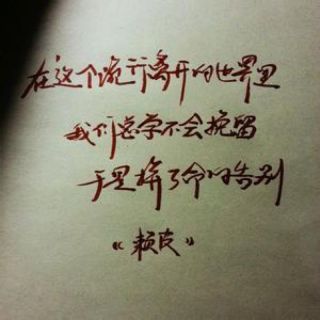 在这个流行离开的世界里
我们总学不会挽留
于是拼了命的告别